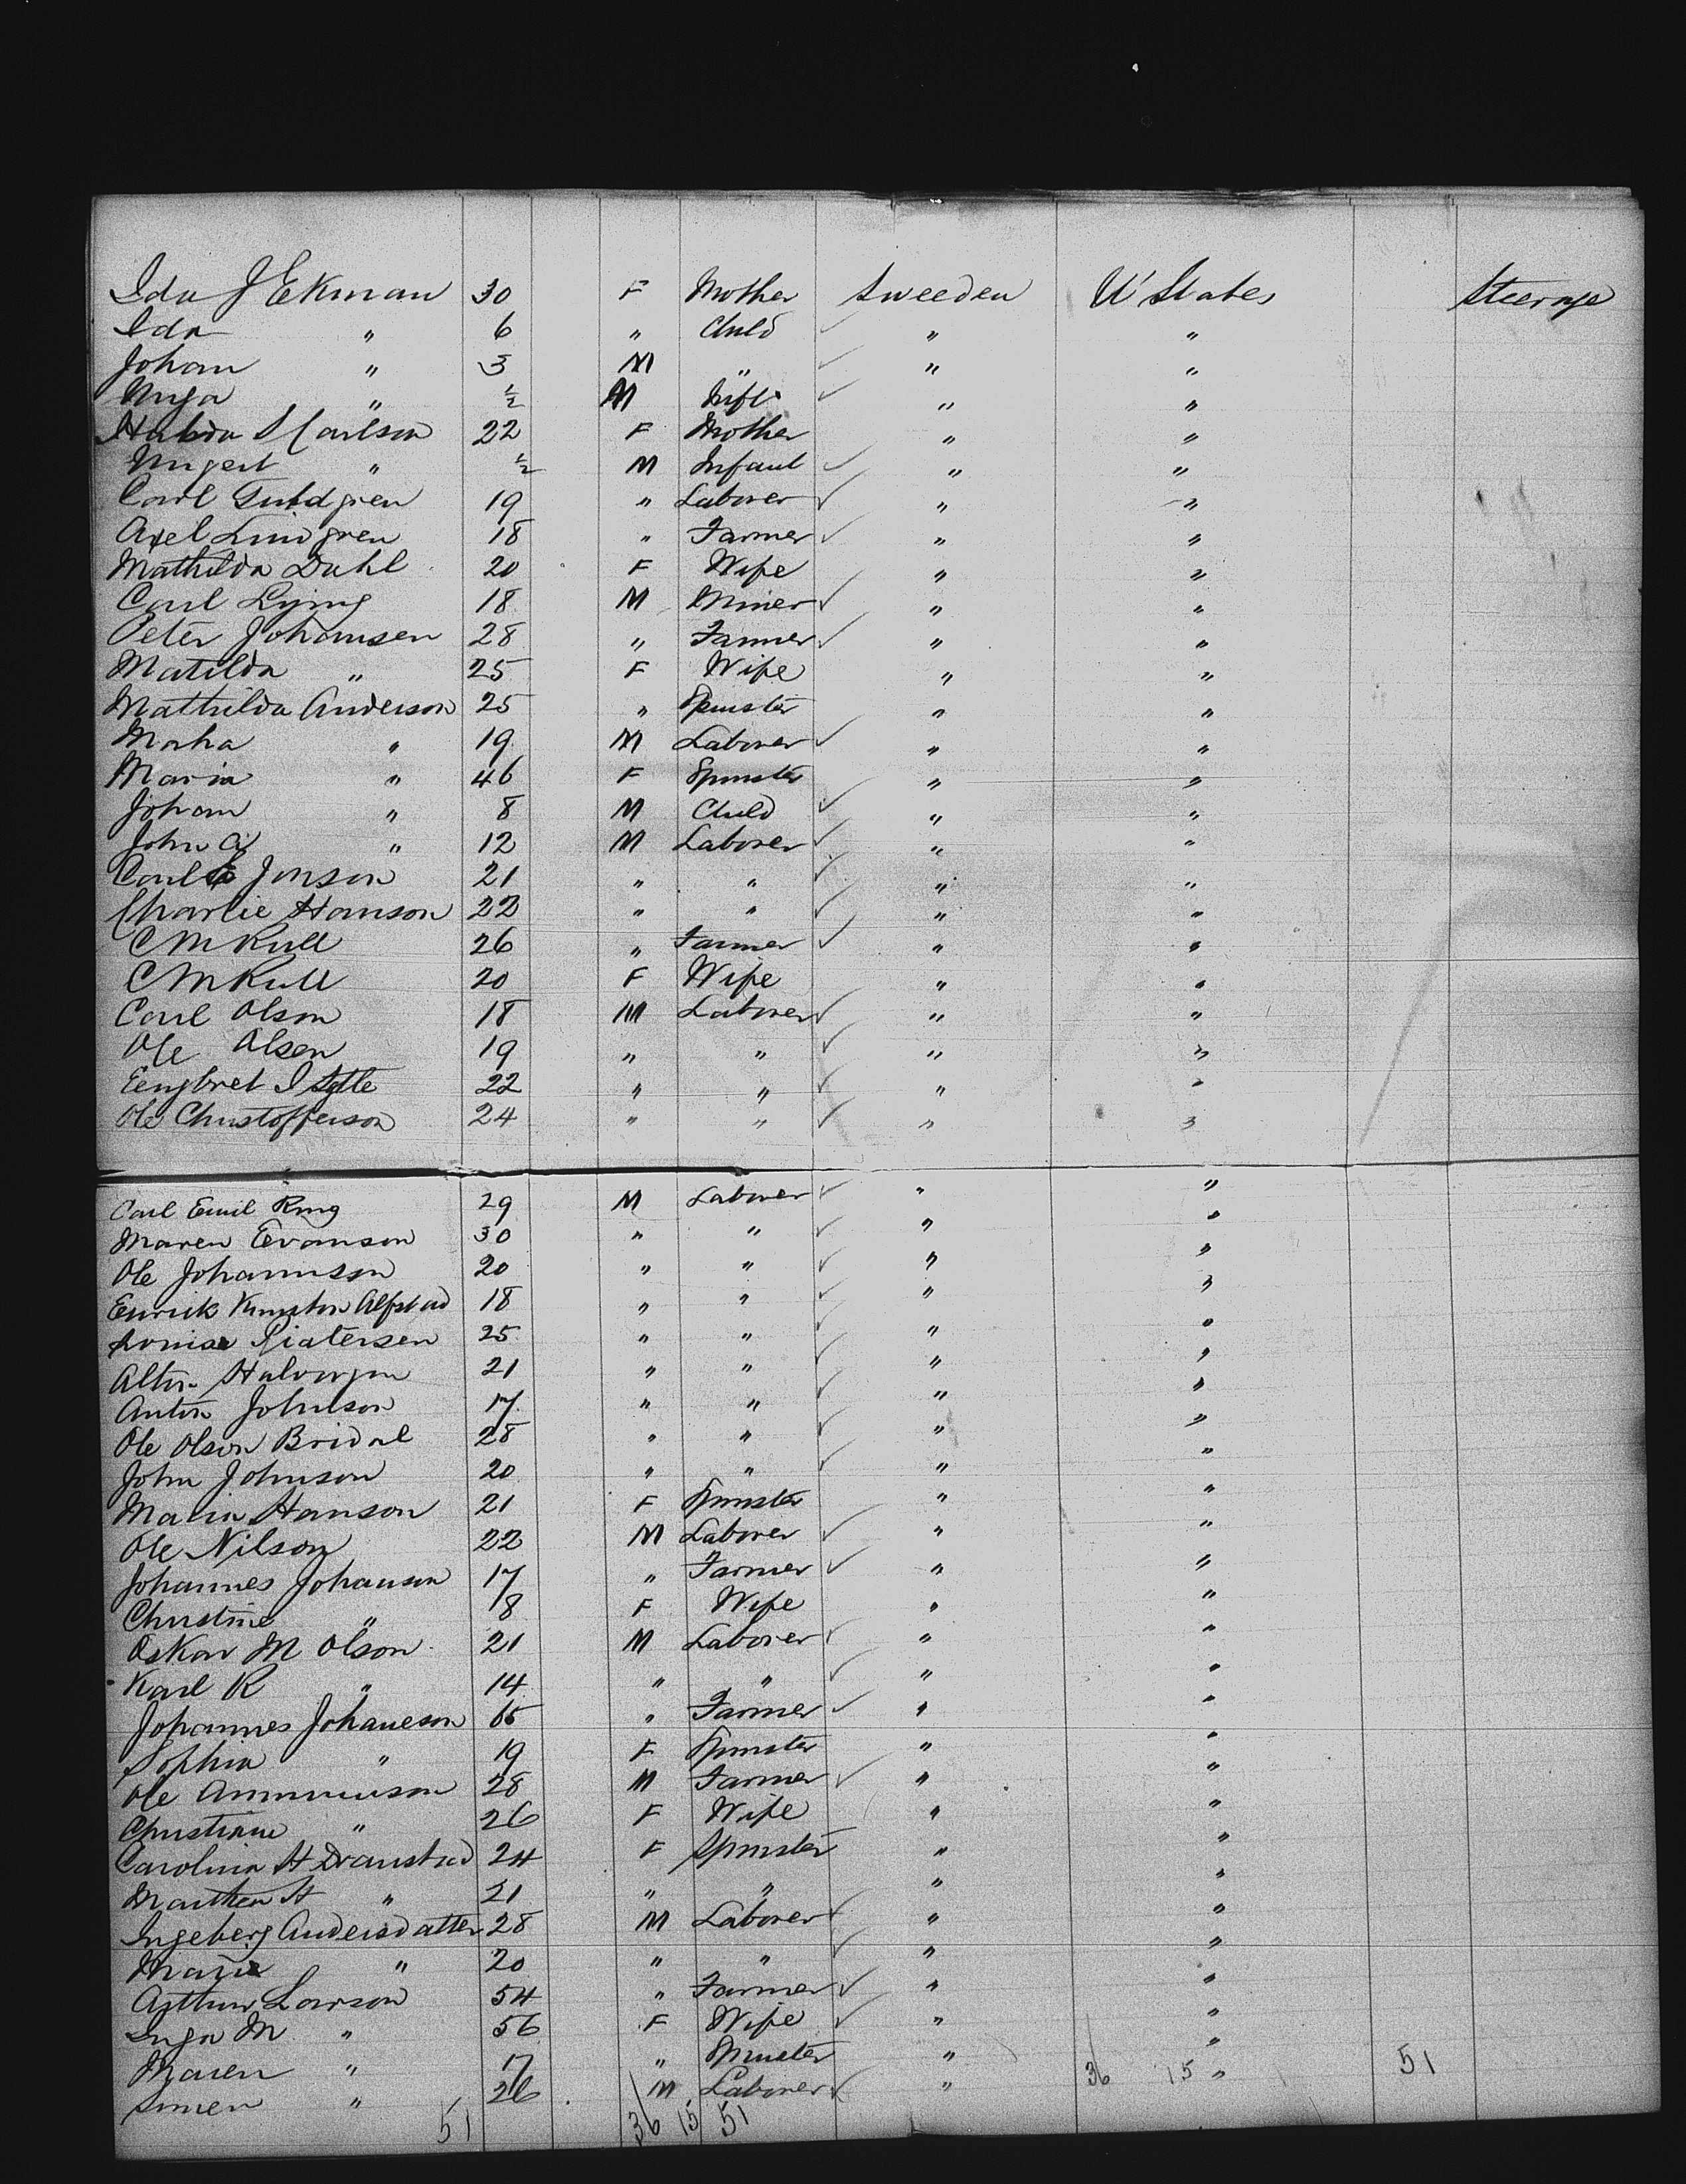 Ida J Ekman 30 F Mother Sweeden U' States Steerage
Ida " 6 " Child " "
Johan " 3 M " " "
Inga " ½ M Inft " "
Hulda S Carlson 22 F Mother " "
" ½ M Infant " "
Carl 19 " Laborer " "
Axel Lindgren 18 " Farmer " "
Mathilda Dahl 20 F Wife " "
Carl 18 M Miner " "
Peter Johansen 28 " Farmer " "
Matilda " 25 F Wife " "
Mathilda Anderson 25 " Spinster " "
" 19 M Laborer " "
Maria " 46 F Spinster " "
Johan " 8 M Child " "
John A " 12 M Laborer " "
Carl E Jonson 21 " " " "
Charlie Hanson 22 " " " "
C M Rull 26 " Farmer " "
C M Rull 20 F Wife " "
Carl Olson 18 M Laborer " "
Ole Olsen 19 " " " "
Eengbret I 22 " " " "
Ole Christofferson 24 " " " "
Carl Emil Ring 29 M Laborer " "
Maren Evanson 30 " " " "
Ole Johannson 20 " " " "
18 " " " "
Louise 25 " " " "
21 " " " "
Anton Johnson 17 " " " "
Ole Olson Bridal 28 " " " "
John Johnson 20 " " " "
Hanson 21 F Spinster " "
Ole Nilson 22 M Laborer " "
Johannes Johanson 17 " Farmer " "
Christine " 18 F Wife " "
Oskar M Olson 21 M Laborer " "
Karl R " 14 " " " "
Johannes Johaneson 65 " Farmer " "
Sophia " 19 F Spinster " "
Ole 28 M Farmer " "
Christiane " 26 F Wife " "
Carolina H 24 F Spinster " "
H " 21 " " " "
Ingeberg Andersdatter 28 M Laborer " "
Marie " 20 " " " "
Larson 54 " Farmer " "
Inga M " 56 F Wife " "
Maren " 17 " Spinster " "
Simen " 26 M Laborer " 36 15 " 51
51 36 15 51